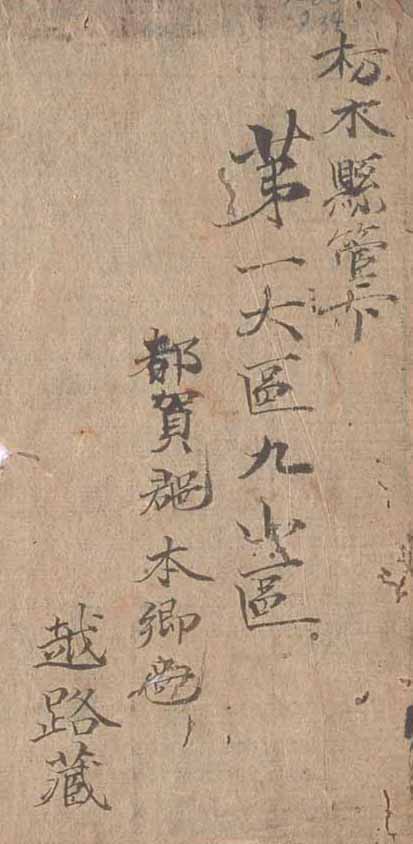 栃木縣管下
第一大區九小區
都賀郡本郷邑
越路蔵